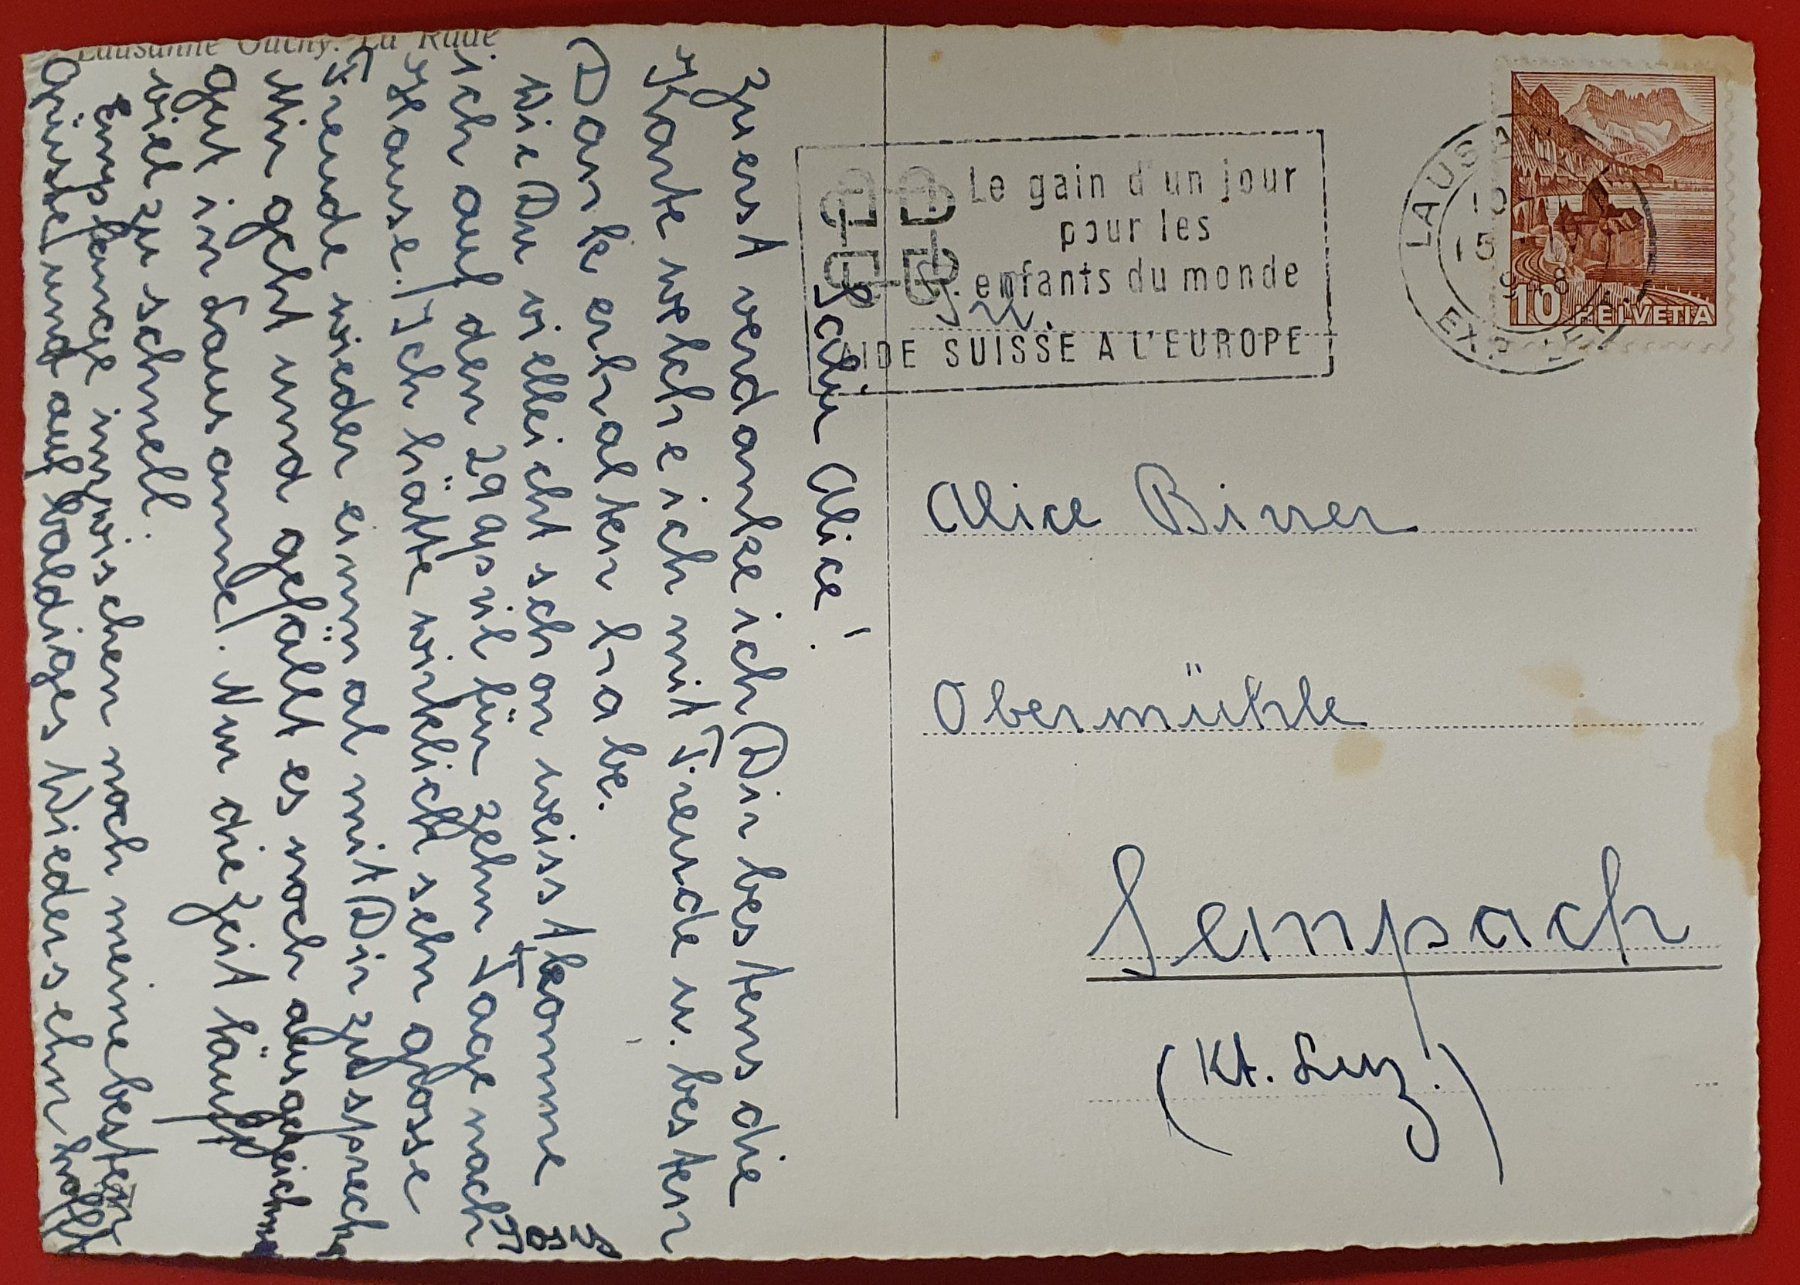 Lausanne Ouchy. La Rade
Salü Alice!
Zuerst verdanke ich Dir bestens die
Karte welche ich mit Freude u. besten
Dank erhalten habe.
Wie Du vielleicht schon weisst komme
ich auf den 29 April für zehn Tage nach
Hause. Ich hätte wirklich sehr grosse
Freude wieder einmal mit Dir zu sprech
Mir geht und gefällt es noch ausgezeichne
gut in Lausanne. Nur die Zeit läuft
viel zu schnell.
Empfange inzwischen noch meine besten
Grüsse und auf baldiges Wiedersehn hofft
Le gain d'un jour
pour les
enfants du monde
AIDE SUISSE A L'EUROPE
LAUSANNE
10
15
948
EXP. LET.
10 HELVETIA
Frl.
Alice Birrer
Obermühle
Sempach
(Kt. Luz.)